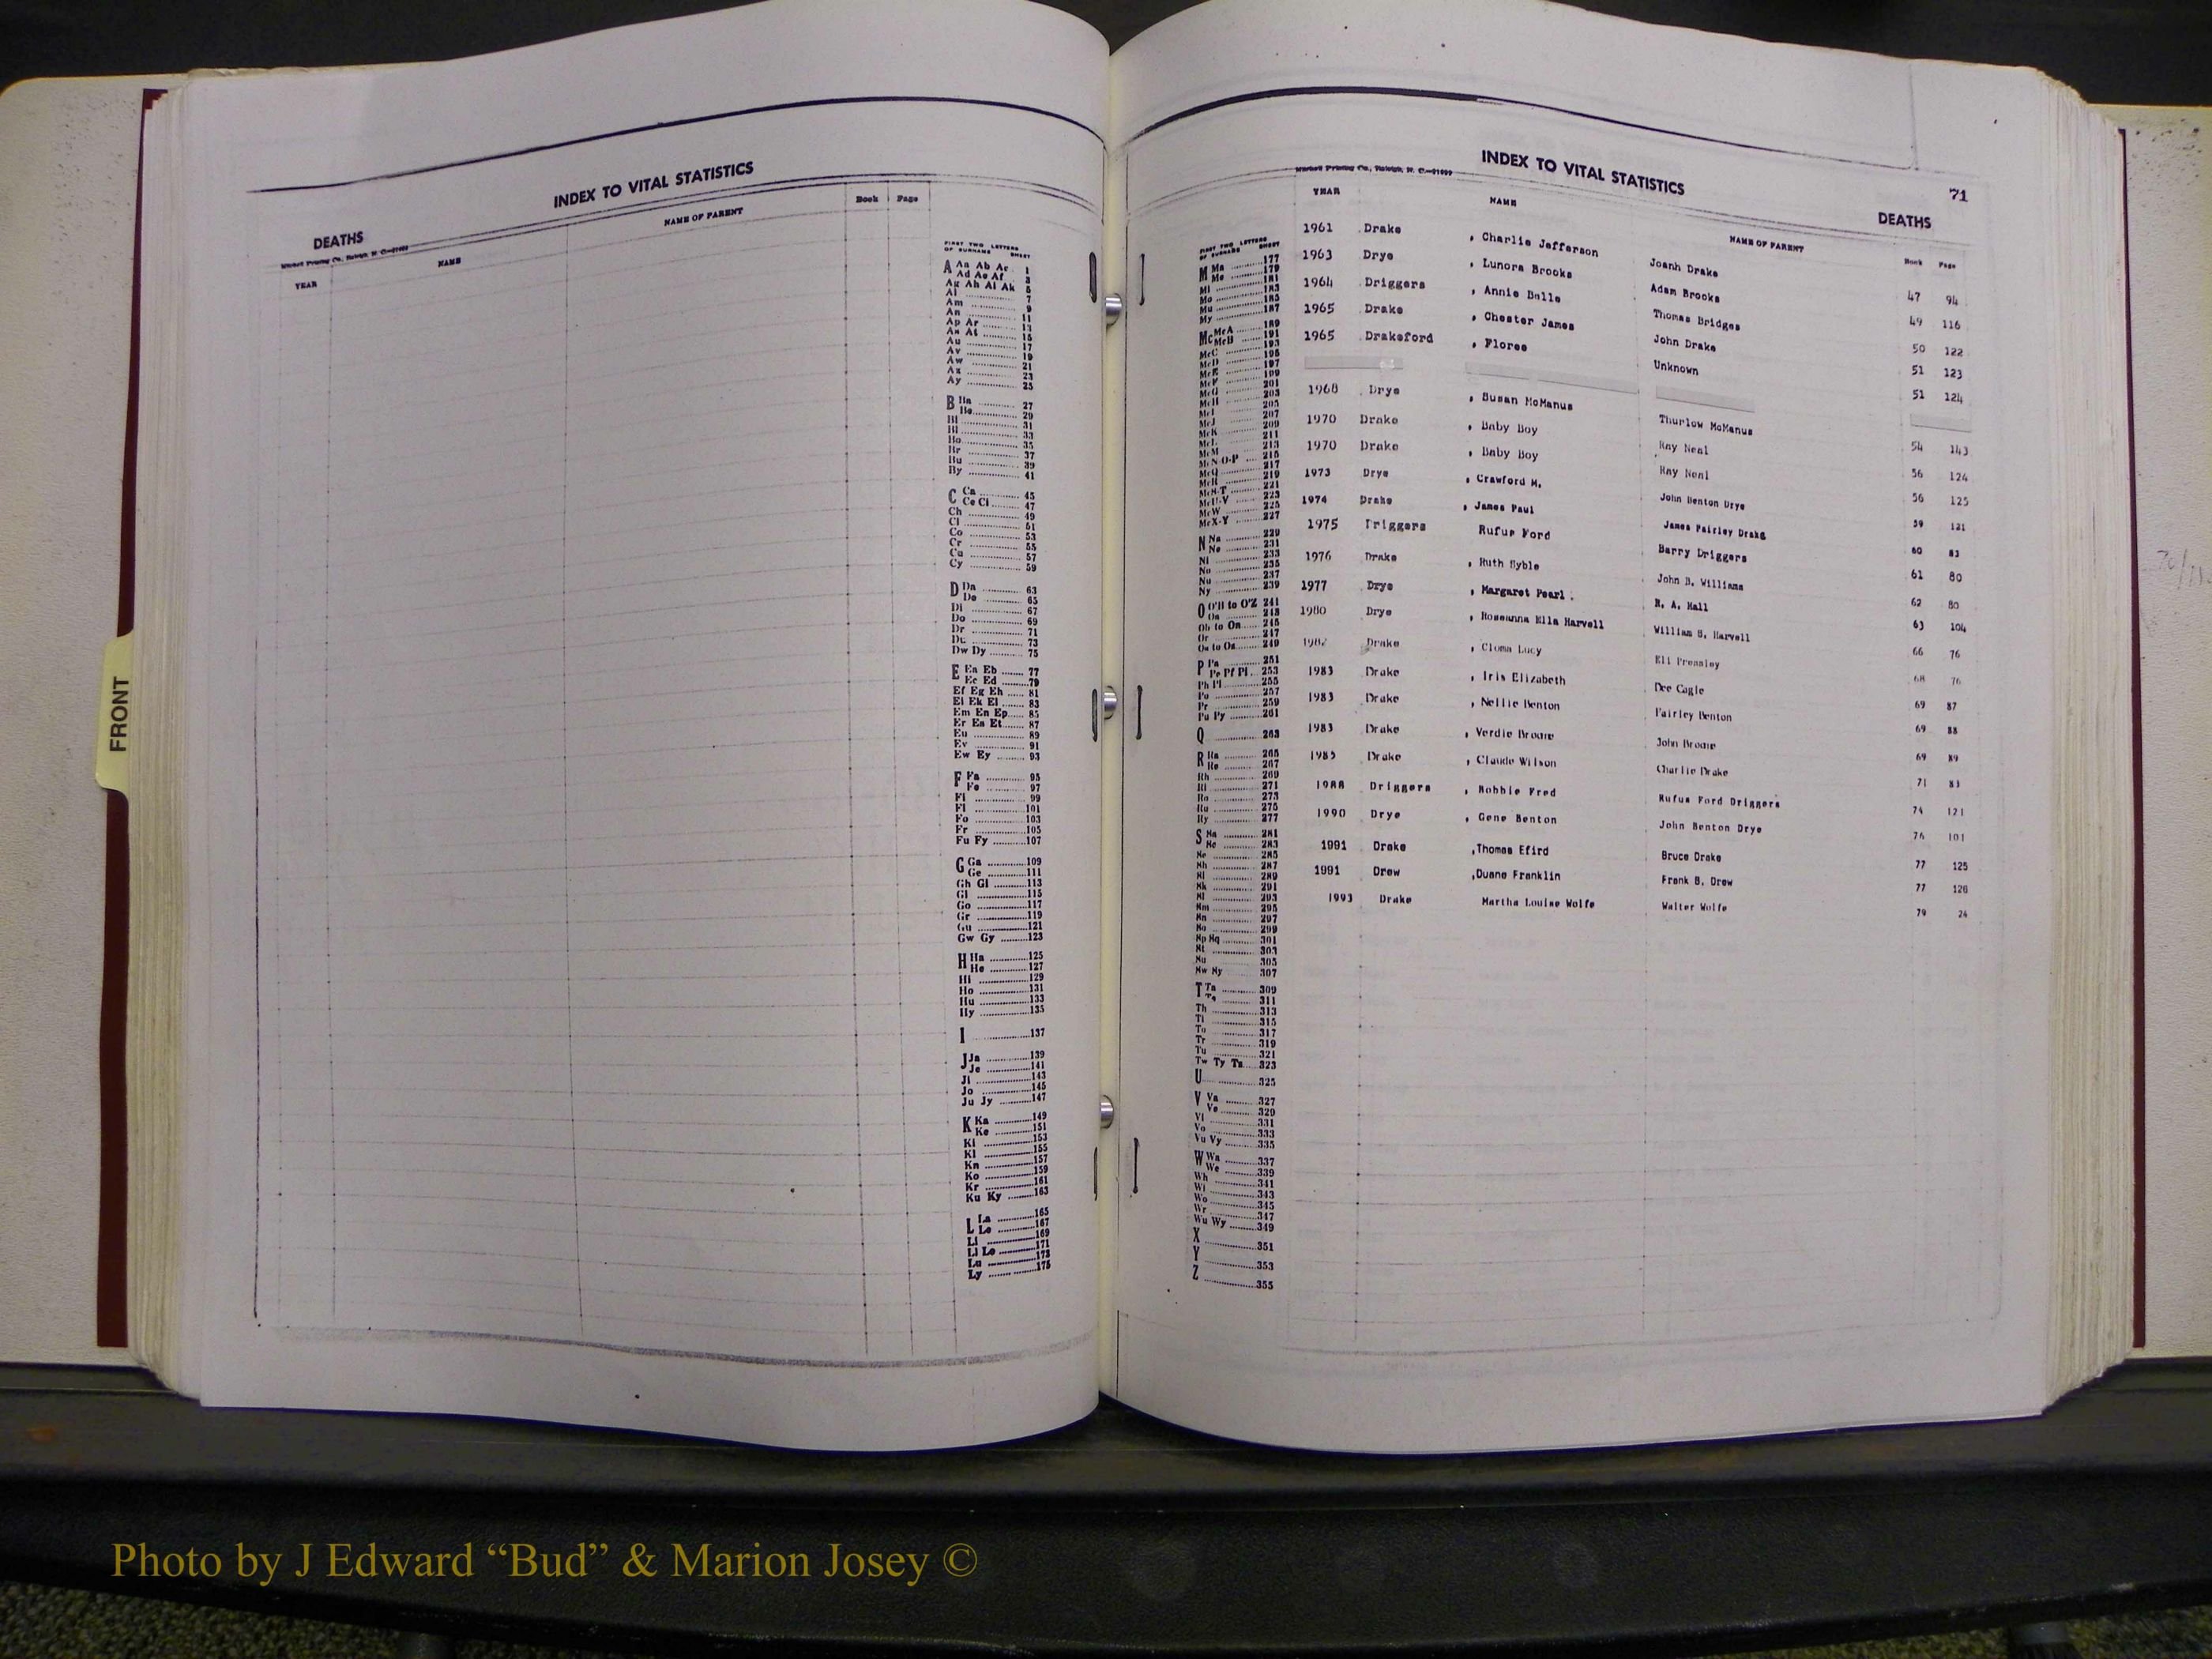 INDEX TO VITAL STATISTICS
DEATHS
YEAR NAME NAME OF PARENT Book Page
FIRST TWO LETTERS OF SURNAME SHEET
A Aa Ab Ac 1
Ad Ae Af 3
Ag Ah Ai Ak 5
Al 7
Am 9
An 11
Ap Ar 13
As At 15
Au 17
Av 19
Aw 21
Ax 23
Ay 25
B Ba 27
Be 29
Bi 31
Bl 33
Bo 35
Br 37
Bu 39
By 41
C Ca 45
Ce Ci 47
Ch 49
Cl 51
Co 53
Cr 55
Cu 57
Cy 59
D Da 63
De 65
Di 67
Do 69
Dr 71
Du 73
Dw Dy 75
E Ea Eb 77
Ec Ed 79
Ef Eg Eh 81
Ei Ek El 83
Em En Ep 85
Er Es Et 87
Eu 89
Ev 91
Ew Ey 93
F Fa 95
Fe 97
Fi 99
Fl 101
Fo 103
Fr 105
Fu Fy 107
G Ga 109
Ge 111
Gh Gi 113
Gl 115
Go 117
Gr 119
Gu 121
Gw Gy 123
H Ha 125
He 127
Hi 129
Ho 131
Hu 133
Hy 135
I 137
J Ja 139
Je 141
Ji 143
Jo 145
Ju Jy 147
K Ka 149
Ke 151
Ki 153
Kl 155
Kn 157
Ko 159
Kr 161
Ku Ky 163
L La 165
Le 167
Li 169
Ll Lo 171
Lu 173
Ly 175
FRONT
INDEX TO VITAL STATISTICS
71
DEATHS
YEAR NAME NAME OF PARENT Book Page
FIRST TWO LETTERS OF SURNAME SHEET
M Ma 177
Me 179
Mi 181
Mo 183
Mu 185
My 187
Mc McA 189
McB 191
McC 193
McD 195
McE 197
McF 199
McG 201
McH 203
McI 205
McJ 207
McK 209
McL 211
McM 213
McN-O-P 215
McQ 217
McR 219
McS-T 221
McU-V 223
McW 225
McX-Y 227
N Na 229
Ne 231
Ni 233
No 235
Nu 237
Ny 239
O O'B to O'Z 241
Oa 243
Ob to On 245
Or 247
Os to Oz 249
P Pa 251
Pe Pf Pi 253
Ph Pl 255
Po 257
Pr 259
Pu Py 261
Q 263
R Ra 265
Re 267
Rh 269
Ri 271
Ro 273
Ru 275
Ry 277
S Sa 281
Sc 283
Se 285
Sh 287
Si 289
Sk 291
Sl 293
Sm 295
Sn 297
So 299
Sp Sq 301
St 303
Su 305
Sw Sy 307
T Ta 309
Te 311
Th 313
Ti 315
To 317
Tr 319
Tu 321
Tw Ty Tz 323
U 325
V Va 327
Ve 329
Vi 331
Vo 333
Vu Vy 335
W Wa 337
We 339
Wh 341
Wi 343
Wo 345
Wr 347
Wu Wy 349
X 351
Y 353
Z 355
1961 Drake , Charlie Jefferson Joanh Drake 47 94
1963 Drye , Lunora Brooks Adam Brooks 49 116
1964 Driggers , Annie Belle Thomas Bridges 50 122
1965 Drake , Chester James John Drake 51 123
1965 Drakeford , Floree Unknown 51 124
1968 Drye , Susan McManus Thurlow McManus 54 143
1970 Drake , Baby Boy Ray Neal 56 124
1970 Drake , Baby Boy Ray Neal 56 125
1973 Drye , Crawford M. John Benton Drye 59 121
1974 Drake , James Paul James Fairley Drake 60 83
1975 Driggers Rufus Ford Barry Driggers 61 80
1976 Drake , Ruth Hyble John B. Williams 62 80
1977 Drye , Margaret Pearl R. A. Hall 63 104
1980 Drye , Roseanna Ella Harvell William S. Harvell 66 76
1982 Drake , Cloma Lucy Eli Pressley 68 76
1983 Drake , Iris Elizabeth Dee Cagle 69 87
1983 Drake , Nellie Benton Fairley Benton 69 88
1983 Drake , Verdie Broome John Broome 69 89
1985 Drake , Claude Wilson Charlie Drake 71 83
1988 Driggers , Bobbie Fred Rufus Ford Driggers 74 121
1990 Drye , Gene Benton John Benton Drye 76 101
1991 Drake ,Thomas Efird Bruce Drake 77 125
1991 Drew ,Duane Franklin Frank B. Drew 77 126
1993 Drake Martha Louise Wolfe Walter Wolfe 79 24
Photo by J Edward “Bud” & Marion Josey ©